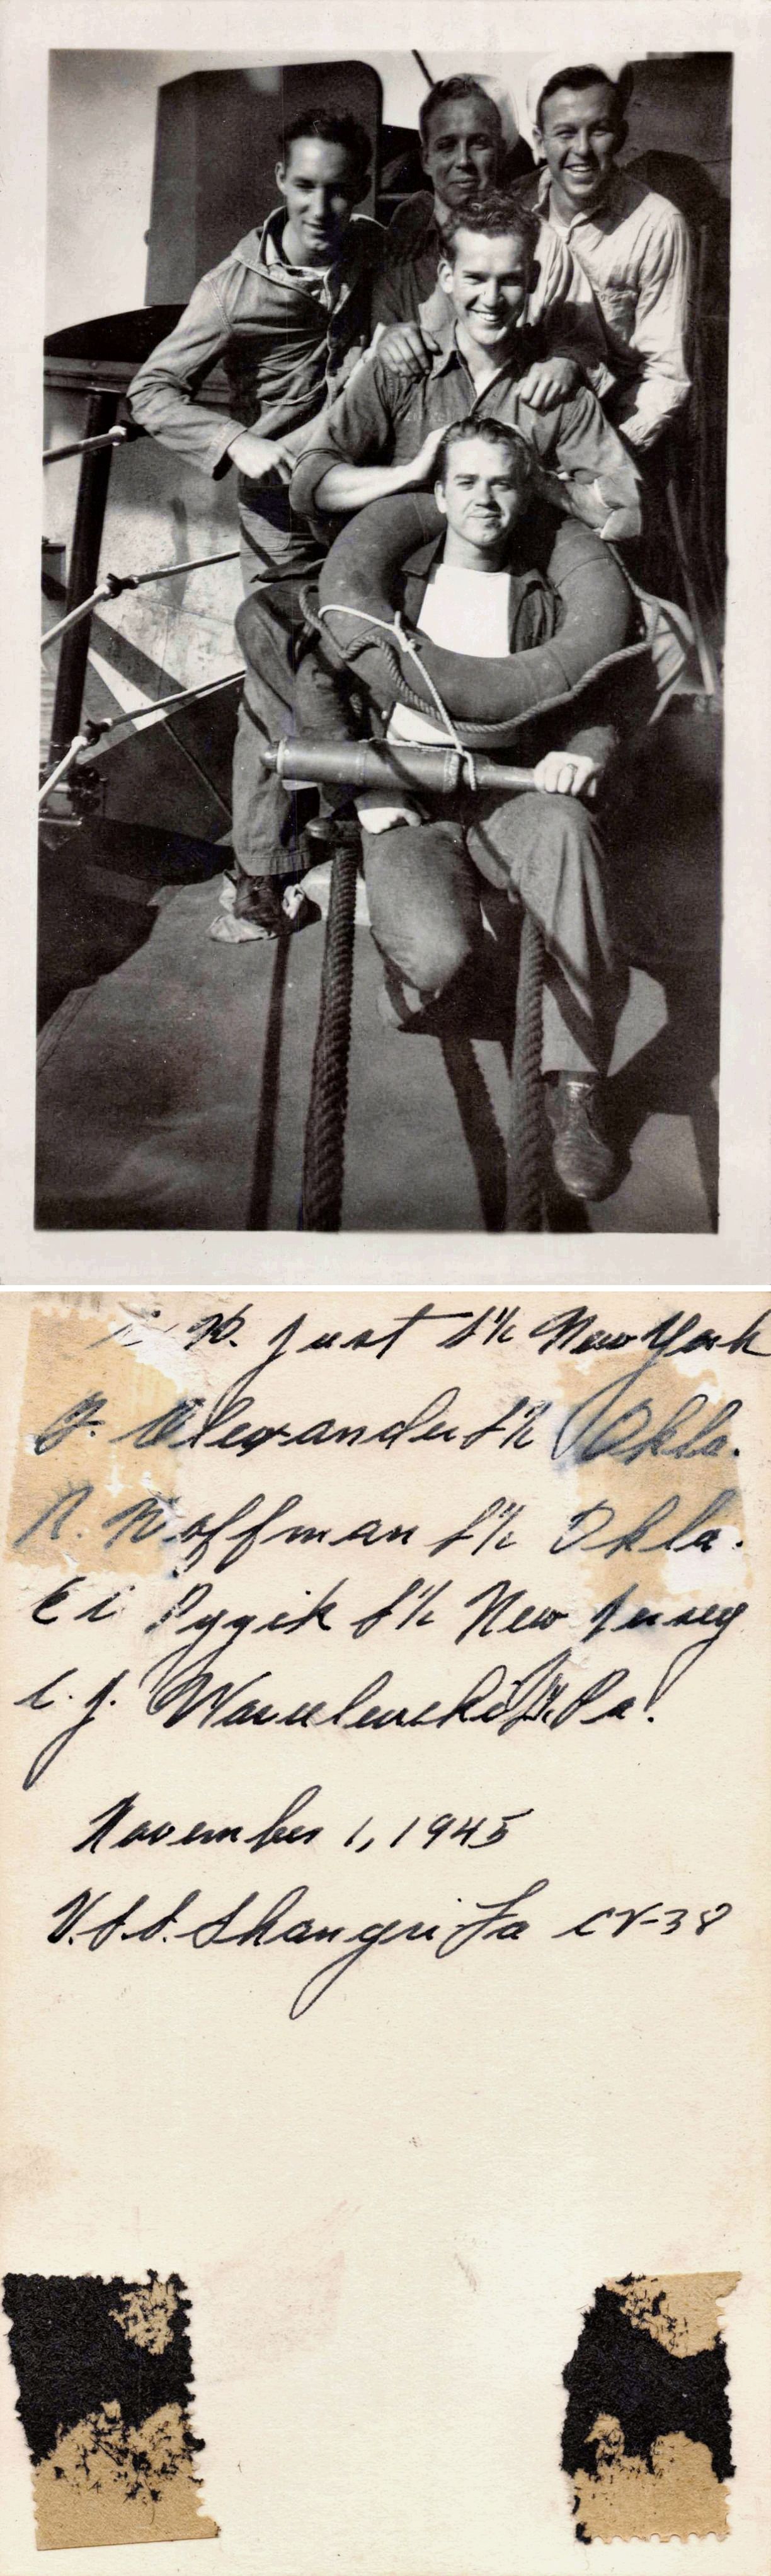 W. Just S 1/c New York
J. Alexander S 1/c Okla.
R. Hoffman S 1/c Okla.
Pyzik S 1/c New Jersey
C. J. Wasielewski Pa.
November 1, 1945
U.S.S. Shangri La CV-38